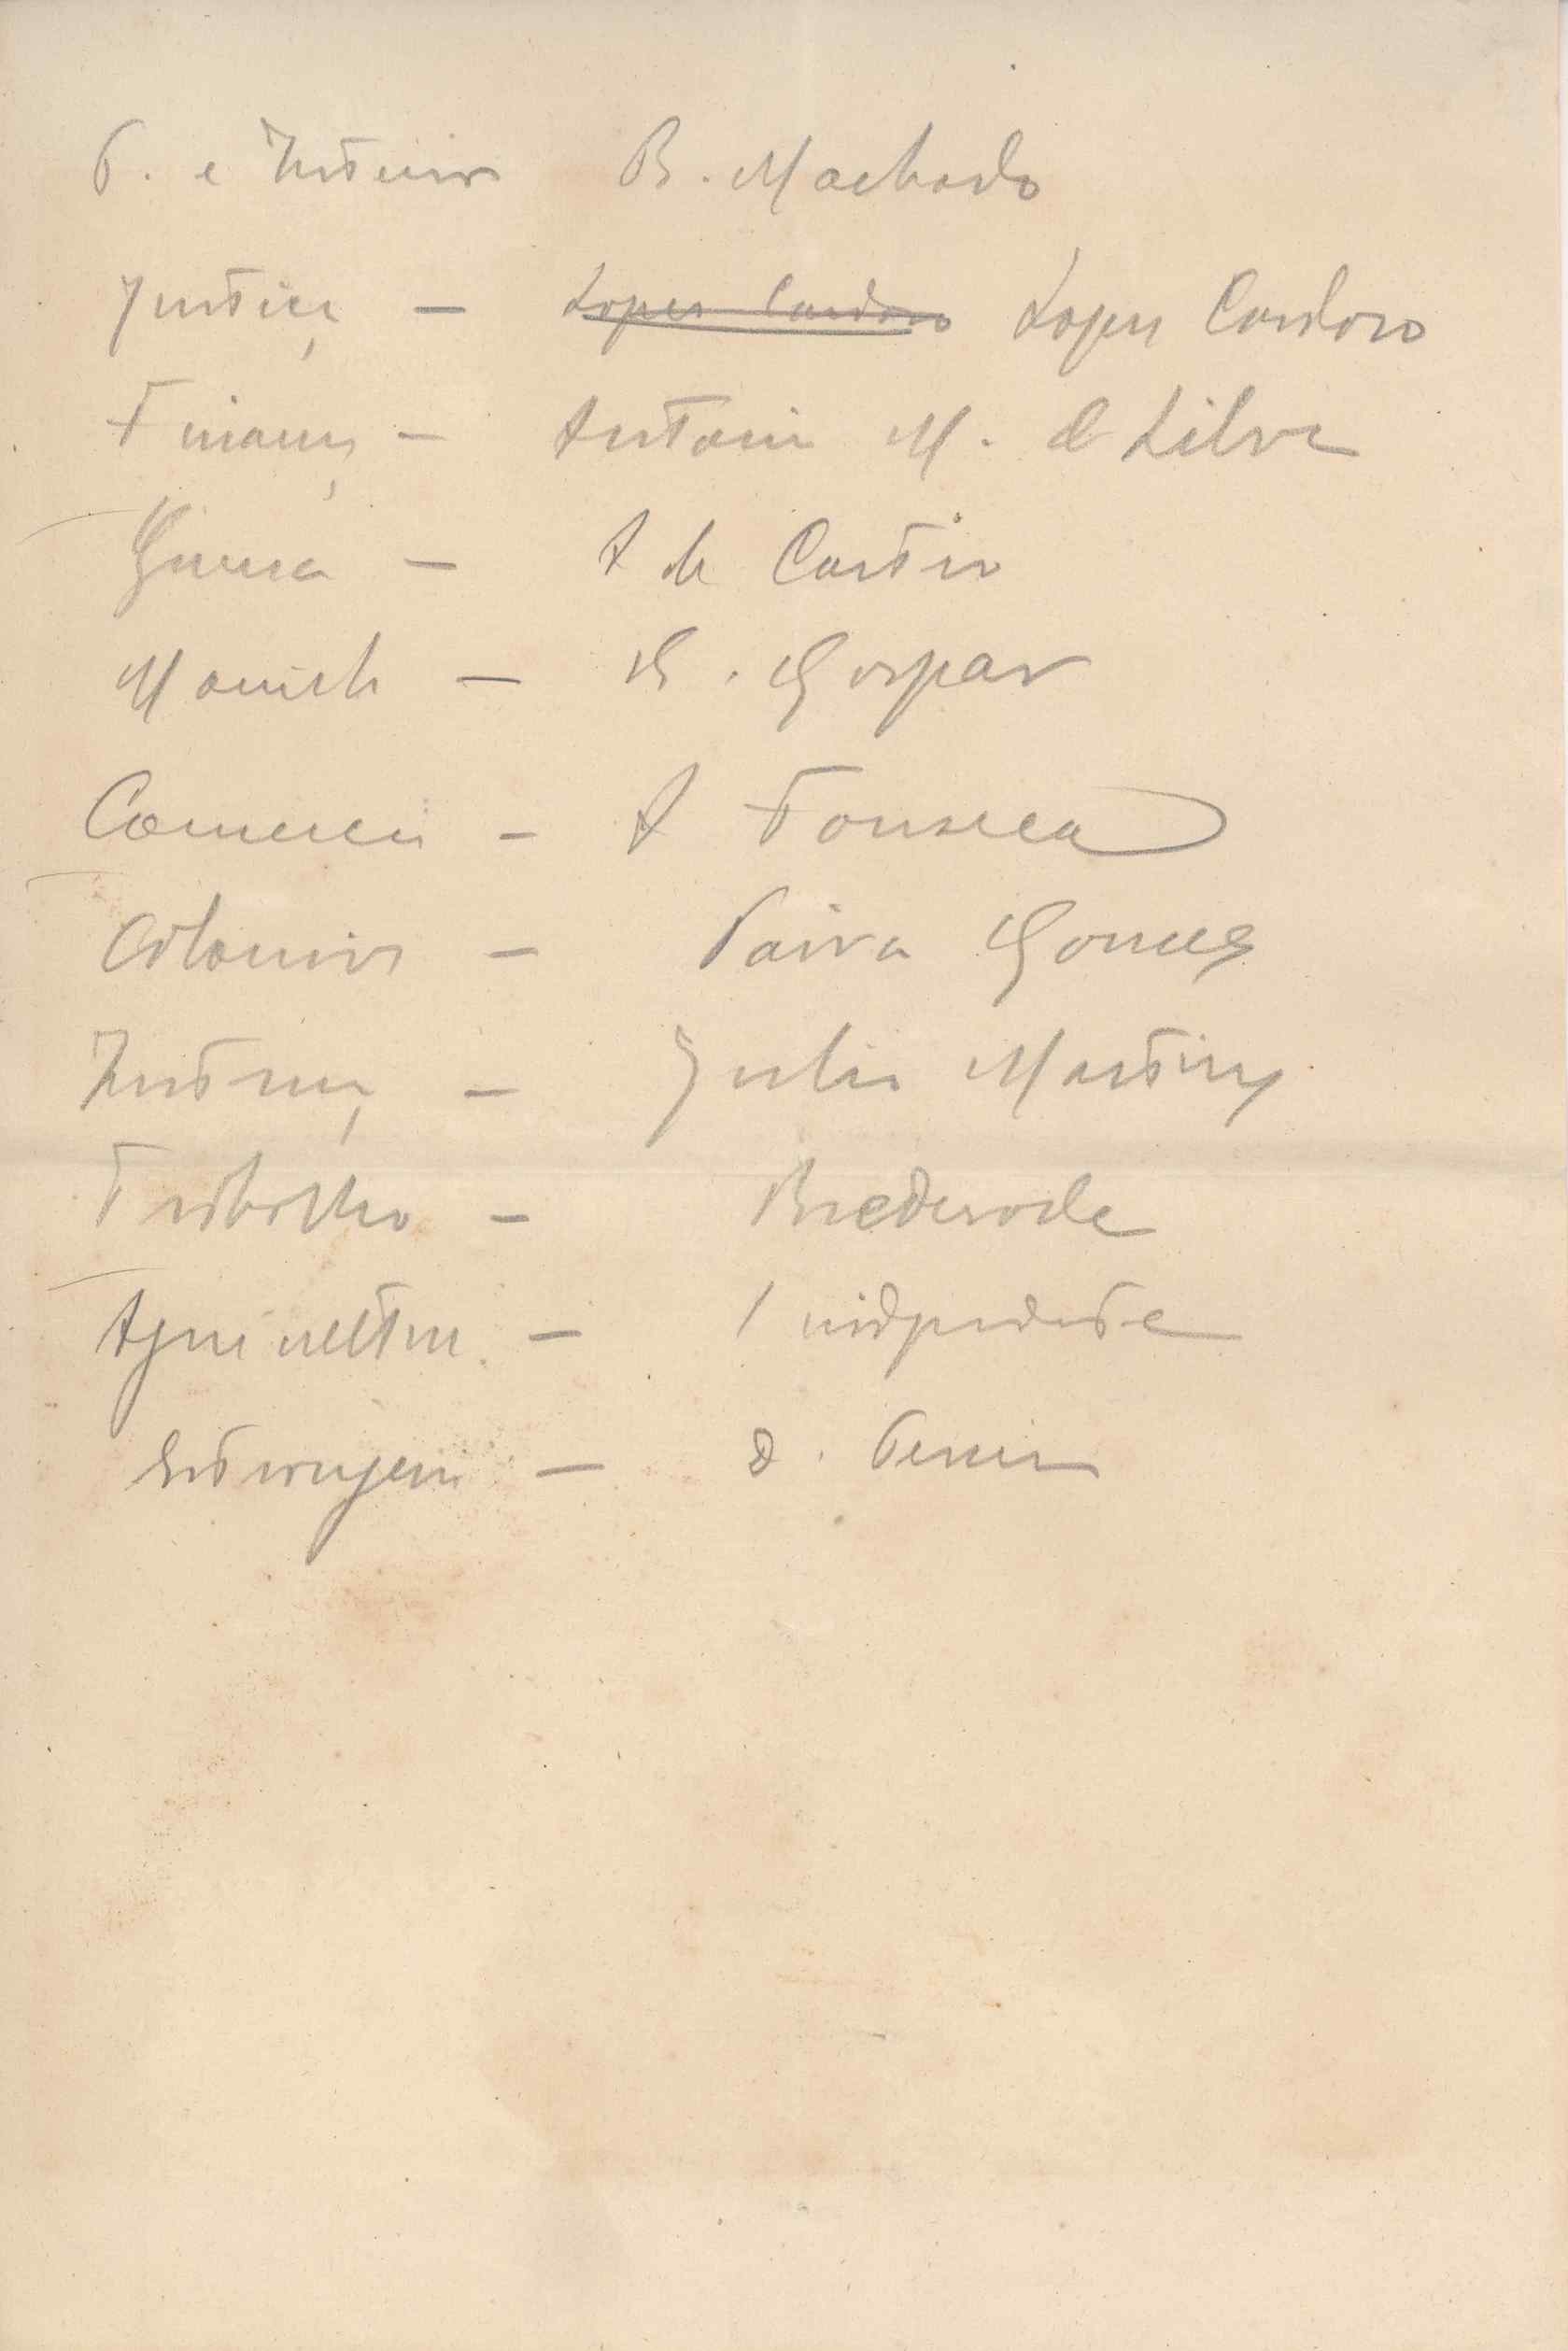 P. e Interior B. Machado
Justiça — Lopes Cardoso Lopes Cardoso
Finanças — Antonio M. da Silva
Guerra — A de Castro
Marinha — G. Gaspar
Comercio — A Fonseca
Colonias — Paiva Gomes
Instrução — Julio Martins
Trabalho — Brederode
Agricultura — 1 independente
Estrangeiros — D. Pereira